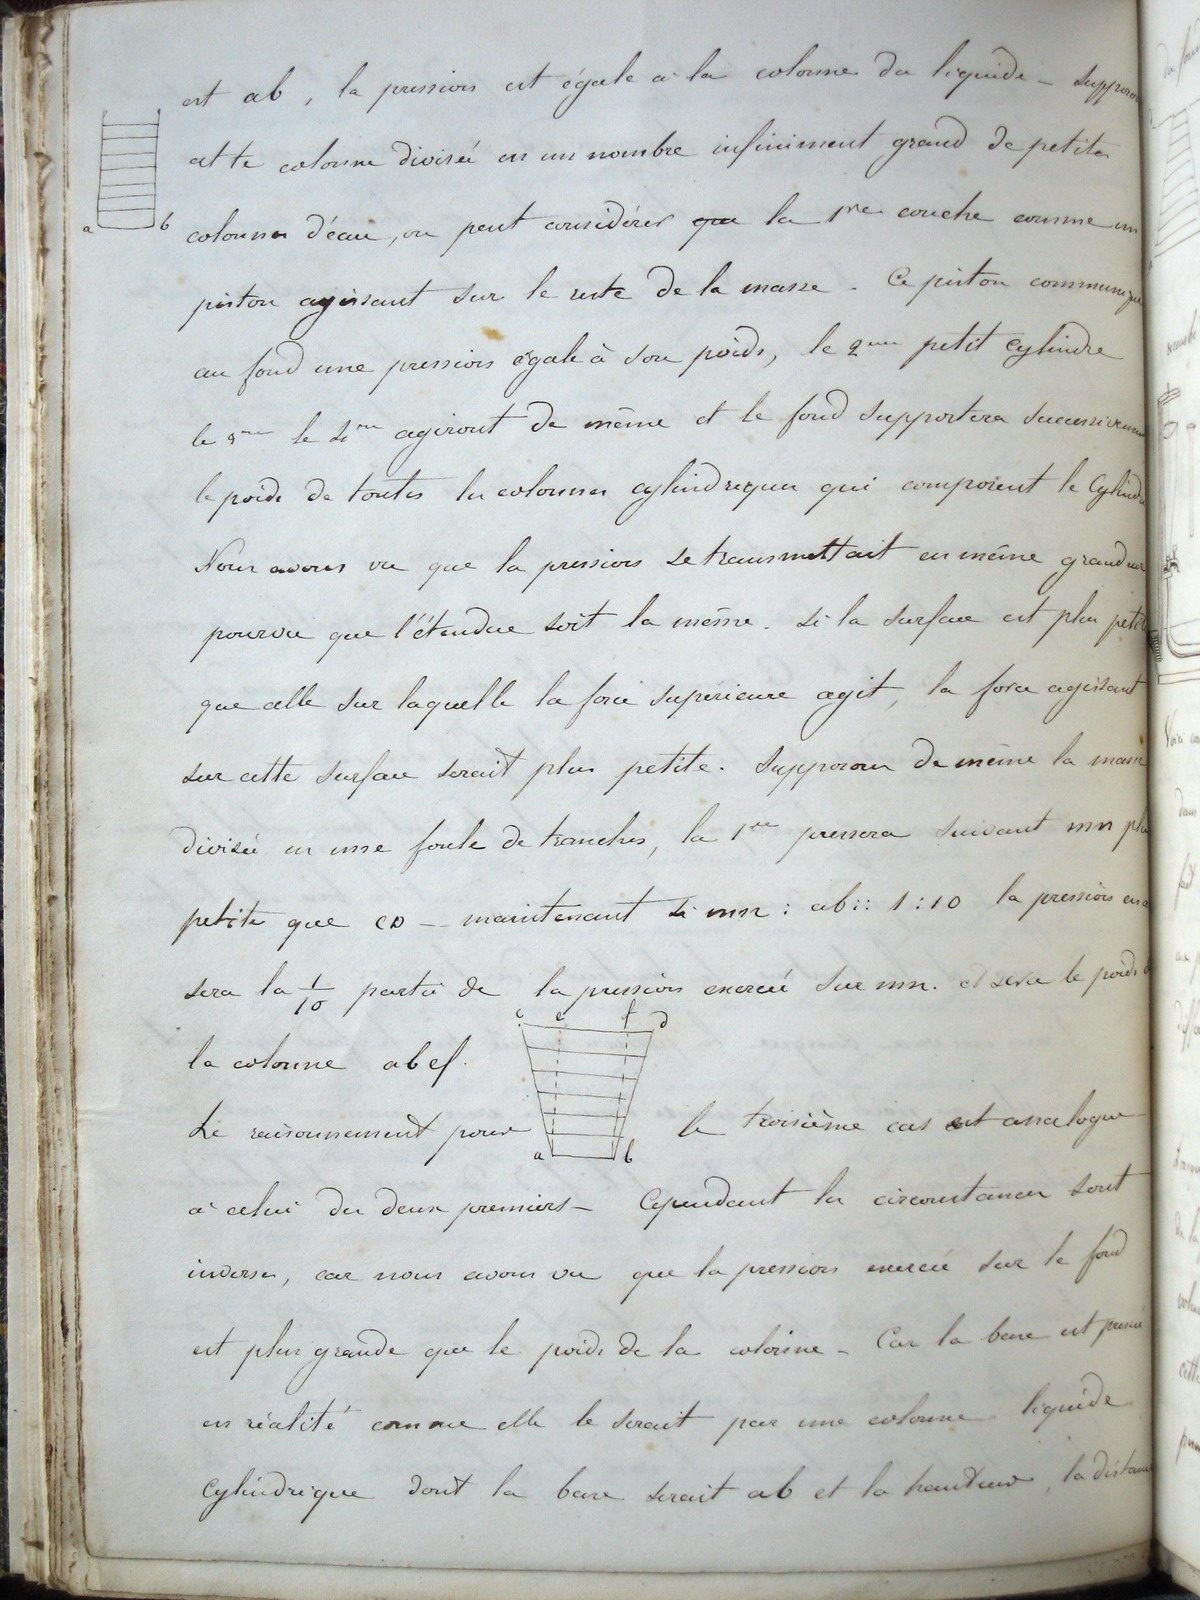 est ab, la pression est égale à la colonne du liquide – supposons
cette colonne divisée en un nombre infiniment grand de petites
a b
colonnes d'eau, on peut considérer que la 1re couche comme un
piston agissant sur le reste de la masse. Ce piston communique
au fond une pression égale à son poids, le 2me petit cylindre
le 3me le 4me agiront de même et le fond supportera successivement
le poids de toutes les colonnes cylindriques qui composent le Cylindre
Nous avons vu que la pression se transmettait en même grandeur
pourvu que l'étendue soit la même. Si la surface est plus petite
que celle sur laquelle la force supérieure agit, la force agissant
sur cette surface serait plus petite. Supposons de même la masse
divisée en une foule de tranches, la 1re pressera suivant mn plus
petite que CD – maintenant si mn : ab :: 1 : 10 la pression en
sera la 1/10 partie de la pression exercée sur mn. et sera le poids
c e f d
la colonne abef.
Le raisonnement pour le troisième cas est analogue
a b
à celui des deux premiers – Cependant les circonstances sont
inverses, car nous avons vu que la pression exercée sur le fond
est plus grande que le poids de la colonne – Car la base est pressée
en réalité comme elle le serait par une colonne liquide
Cylindrique dont la base serait ab et la hauteur, la distance